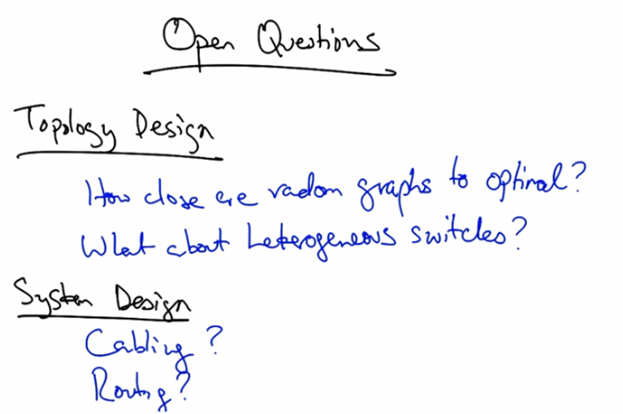 Open Questions
Topology Design
How close are random graphs to optimal?
What about heterogeneous switches?
System Design
Cabling?
Routing?